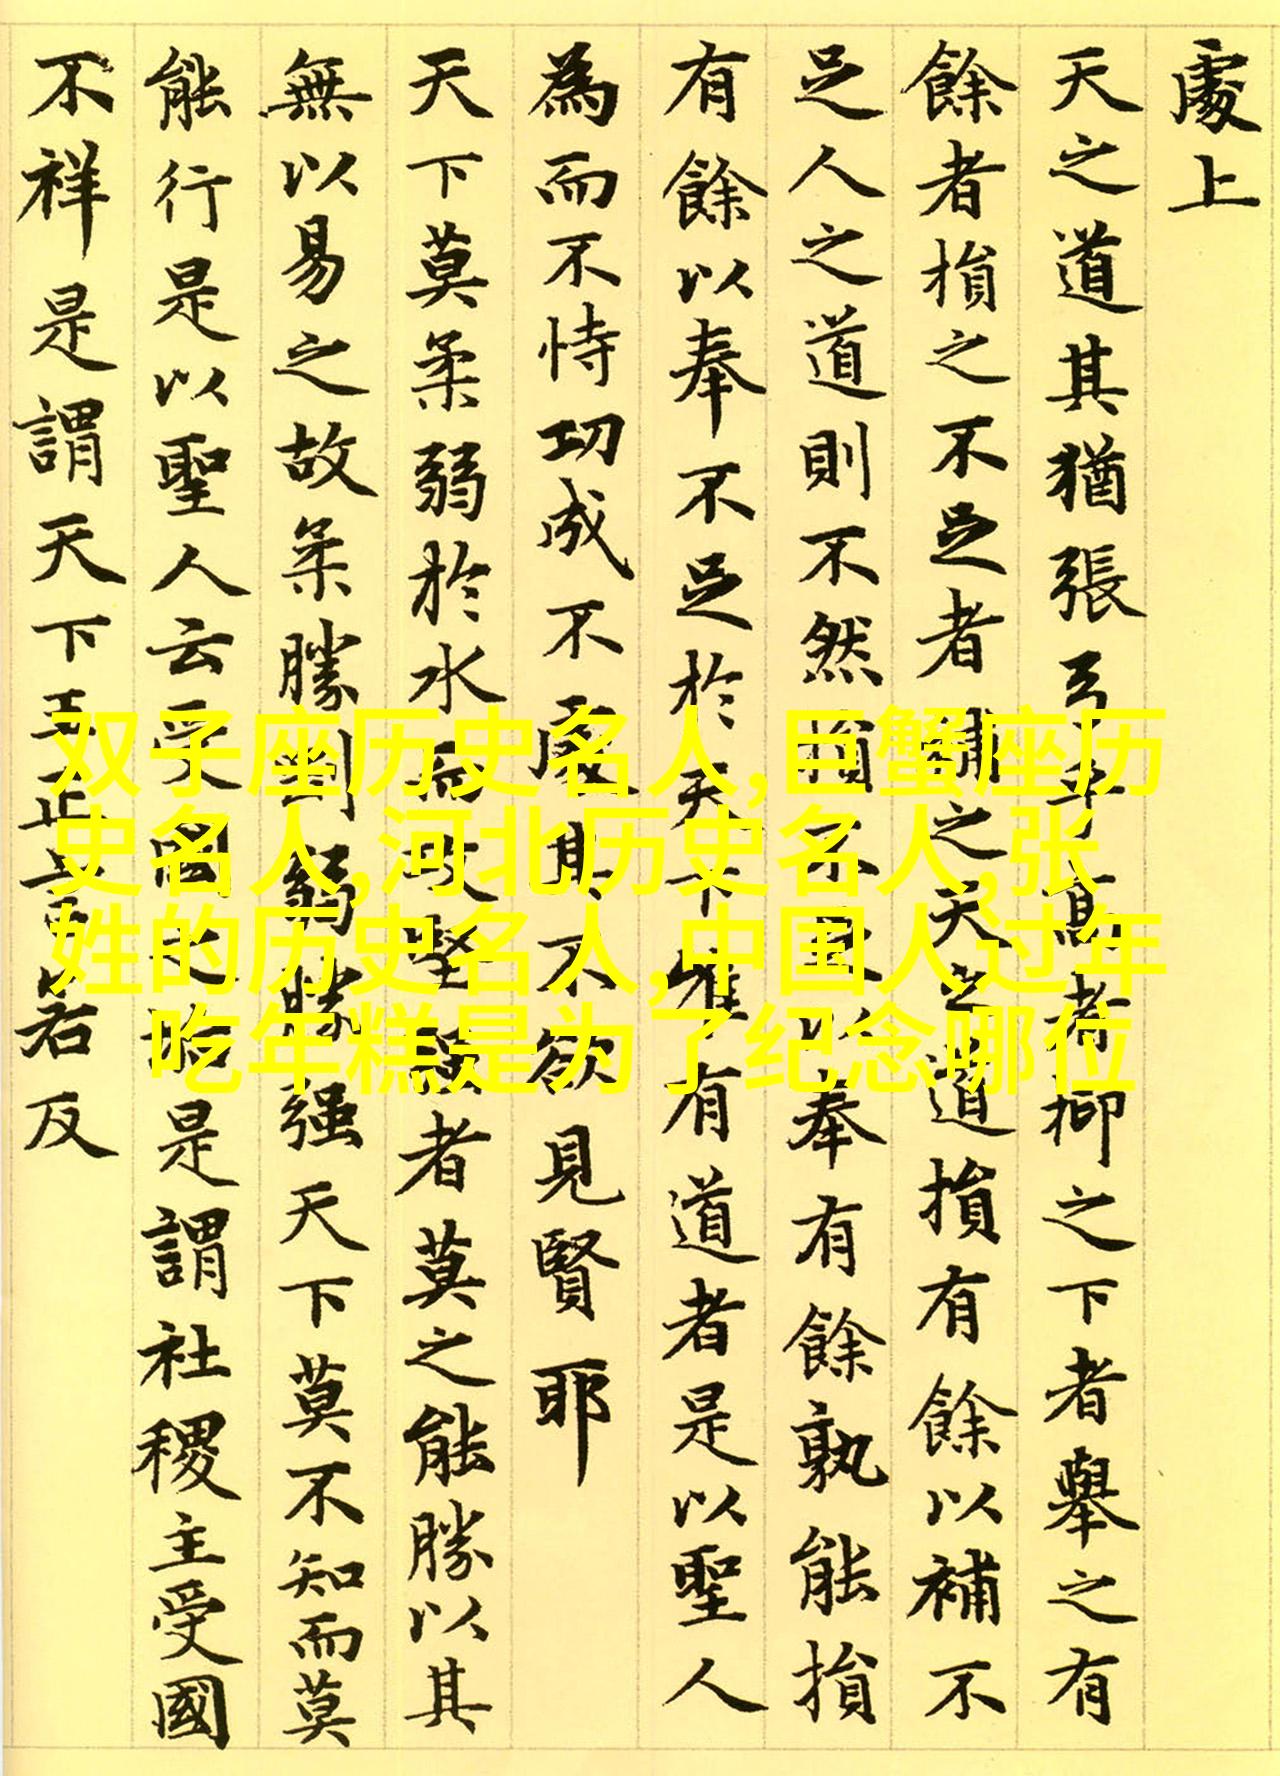 處上
天之道其猶張弓乎高者抑之下者舉之有
餘者損之不足者補之天之道損有餘以補不
足人之道則不然損不足以奉有餘孰能損
有餘以奉不足於天下惟有道者是以聖人
為而不恃功成不處其不欲見賢耶
天下莫柔弱於水而攻堅強者莫之能勝以其
無以易之故柔勝剛弱勝强天下莫不知而莫
能行是以聖人云受國之垢是謂社稷主受國
不祥是謂天下王正言若反
双子座历史名人,巨蟹座历
史名人,河北历史名人,张
姓的历史名人,中国人过年
吃年糕是为了纪念哪位